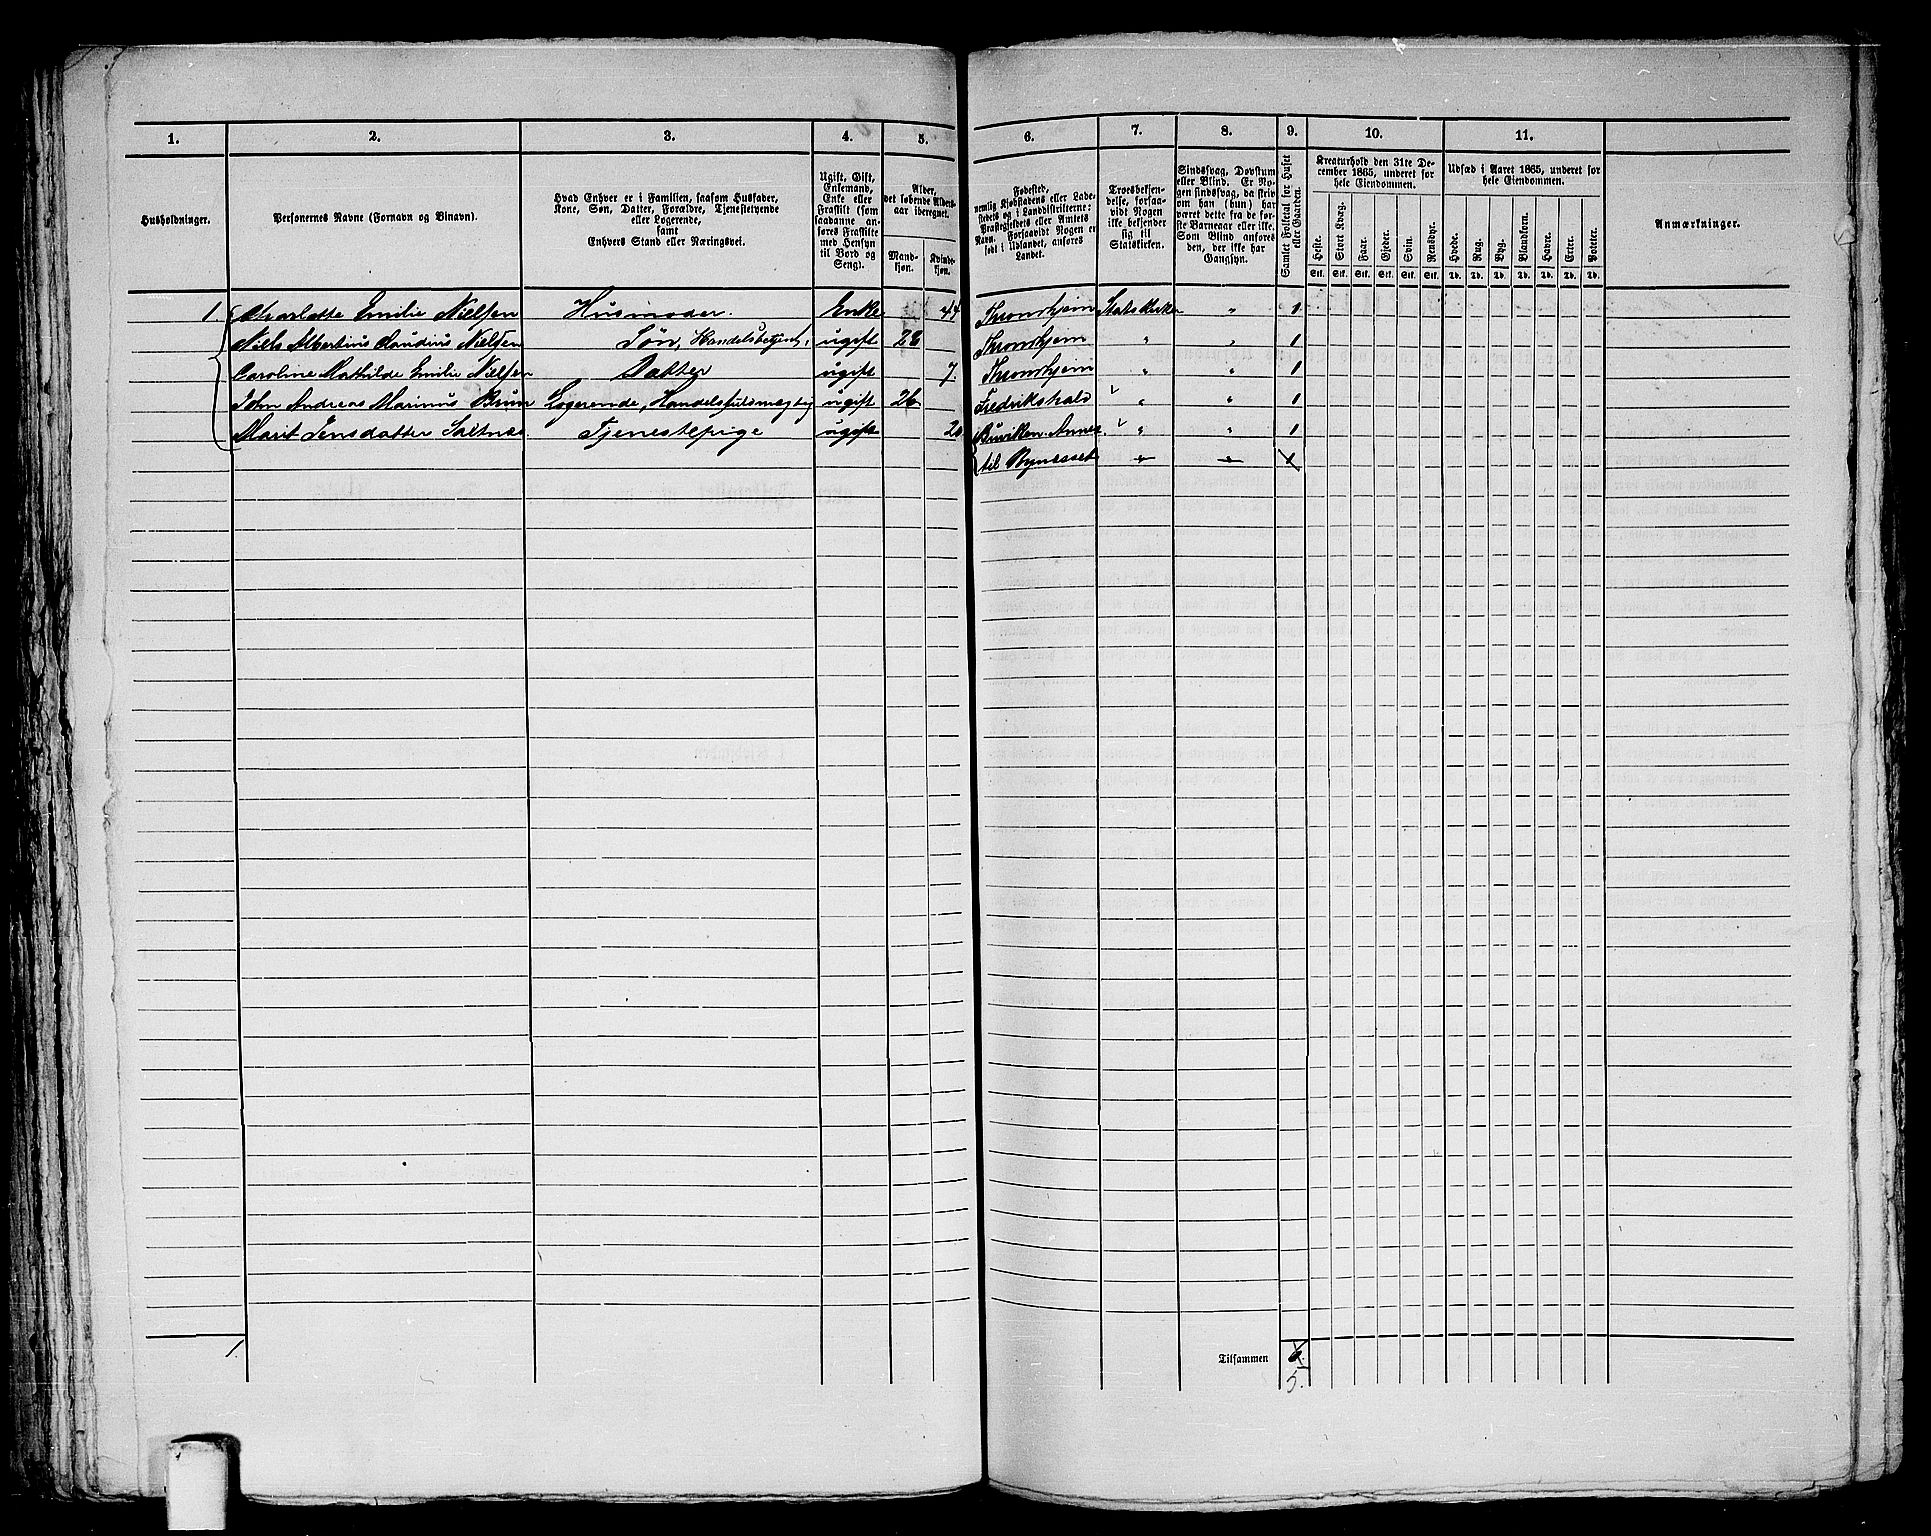 1. 2. 3. 4. 5. 6. 7. 8. 9. 10. 11.
Husholdninger.
Personernes Navne (Fornavn og Binavn).
Hvad Enhver er i Familien, saasom Husfader,
Kone, Søn, Datter, Forældre, Tjenestetyende
eller Logerende,
samt
Enhvers Stand eller Næringsvei.
Ugift, Gift,
Enkemand,
Enke eller
Fraskilt (som
saadanne an-
føres Fraskilte
med Hensyn
til Bord og
Seng).
Alder,
det løbende Alders-
aar iberegnet.
Mand-
kjøn.
Kvinde-
kjøn.
Fødested,
nemlig Kjøbstadens eller Lade-
stedets og i Landdistrikterne:
Præstegjeldets eller Amtets
Navn. Forsaavidt Nogen er
født i Udlandet, anføres
Landet.
Troesbekjen-
delse, forsaa-
vidt Nogen
ikke bekjender
sig til
Statskirken.
Sindssvag, Døvstum
eller Blind. Er No-
gen sindssvag, da skriv
om han (hun) har
været dette fra de før-
ste Barneaar eller ikke.
Som Blind anføres
den, der ikke har
Gangsyn.
Samlet Folketal for Huset
eller Gaarden.
Kreaturhold den 31te De-
cember 1865, underet for
hele Eiendommen.
Heste. Stort Kvæg. Faar. Gjeder. Svin. Rensdyr.
Stk. Stk. Stk. Stk. Stk. Stk.
Udsæd i Aaret 1865, underet for
hele Eiendommen.
Hvede. Rug. Byg. Blandkorn. Havre. Erter. Poteter.
Td. Td. Td. Td. Td. Td. Td.
Anmærkninger.
1. Charlotte Emilie Nielsen Husmoder. Enke 44 Throndhjem Statskirken " 1
Niels Albertinus Claudius Nielsen Søn, Handelsbetjent, ugift 28 Throndhjem " " 1
Caroline Mathilde Emilie Nielsen Datter ugift 7. Throndhjem " " 1
John Andreas Marinus Brun Logerende, Handelsfuldmægtig ugift 26 Fredrikshald " " 1
Marit Jensdatter Saltnes. Tjenestepige ugift 2 Buviken Annex. " " 1
til Bynesset " " 1
1.
Tilsammen 6.
5.